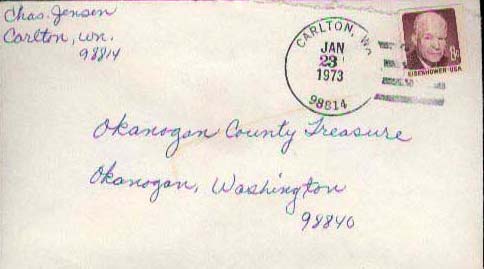 Chas. Jensen
Carlton, Wn.
98814
CARLTON, W
JAN
23
1973
98814
8¢
EISENHOWER·USA
Okanogan County Treasure
Okanogan, Washington
98840